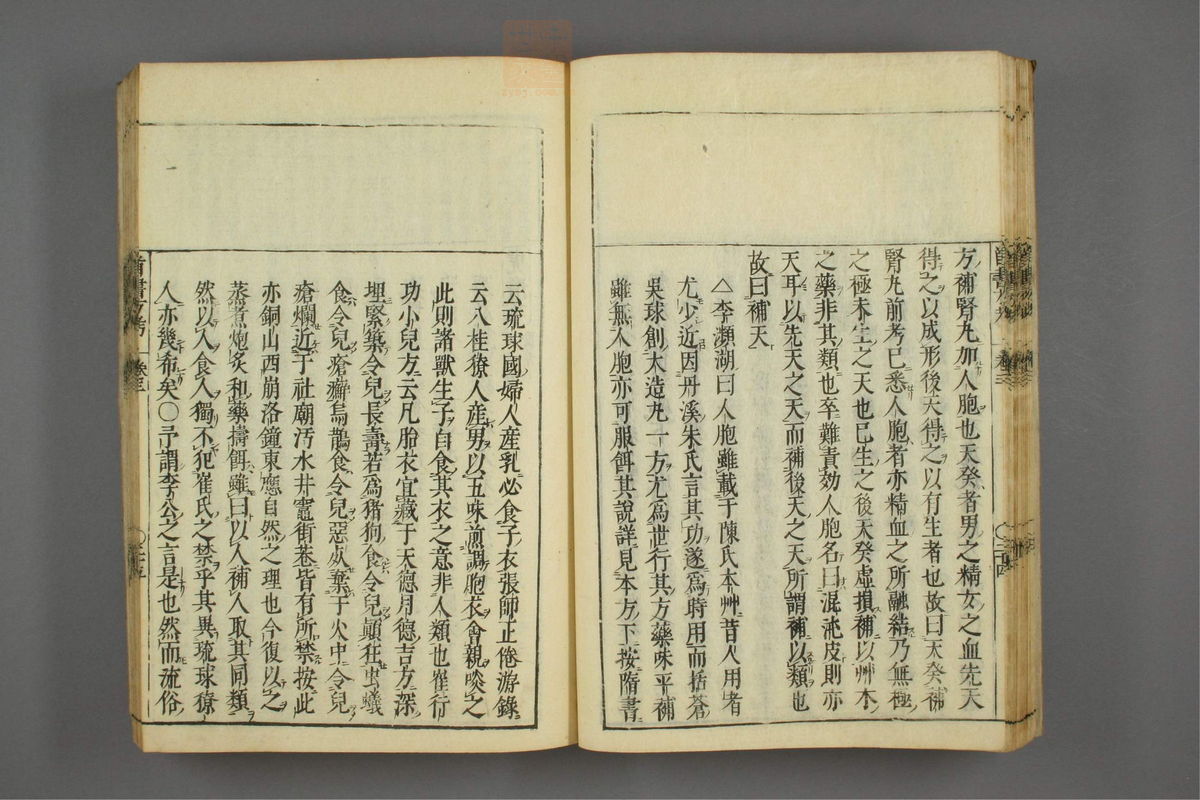 方補腎丸加人胞也天癸者男之精女之血先天
得之以成形後天得之以有生者也故曰天癸補
腎丸前考已悉人胞者亦精血之所融結乃無極
之極未生之天也已生之後天癸虛損補以艸木
之藥非其類也卒難責効人胞名曰混沌皮則亦
天耳以先天之天而補後天之天所謂補以類也
故曰補天
△李瀕湖曰人胞雖載于陳氏本艸昔人用者
尤少近因丹溪朱氏言其功遂爲時用而括蒼
吳球創大造丸一方尤爲世行其方藥味平補
雖無人胞亦可服餌其說詳見本方下按隋書
云琉球國婦人産乳必食子衣張師正倦游錄
云八桂獠人産男以五味煎調胞衣會親啖之
此則諸獸生子自食其衣之意非人類也崔行
功小兒方云凡胎衣宜藏于天德月德吉方深
埋緊築令兒長壽若爲猪狗食令兒顚狂虫蟻
食令兒瘡癬烏鵲食令兒惡死棄于火中令兒
瘡爛近于社廟汚水井竈街巷皆有所禁按此
亦銅山西崩洛鐘東應自然之理也今復以之
蒸煮炮炙和藥擣餌雖曰以人補人取其同類
然以人食人獨不犯崔氏之禁乎其異琉球獠
人亦幾希矣〇予謂李公之言是也然而流俗
首書方考
卷三